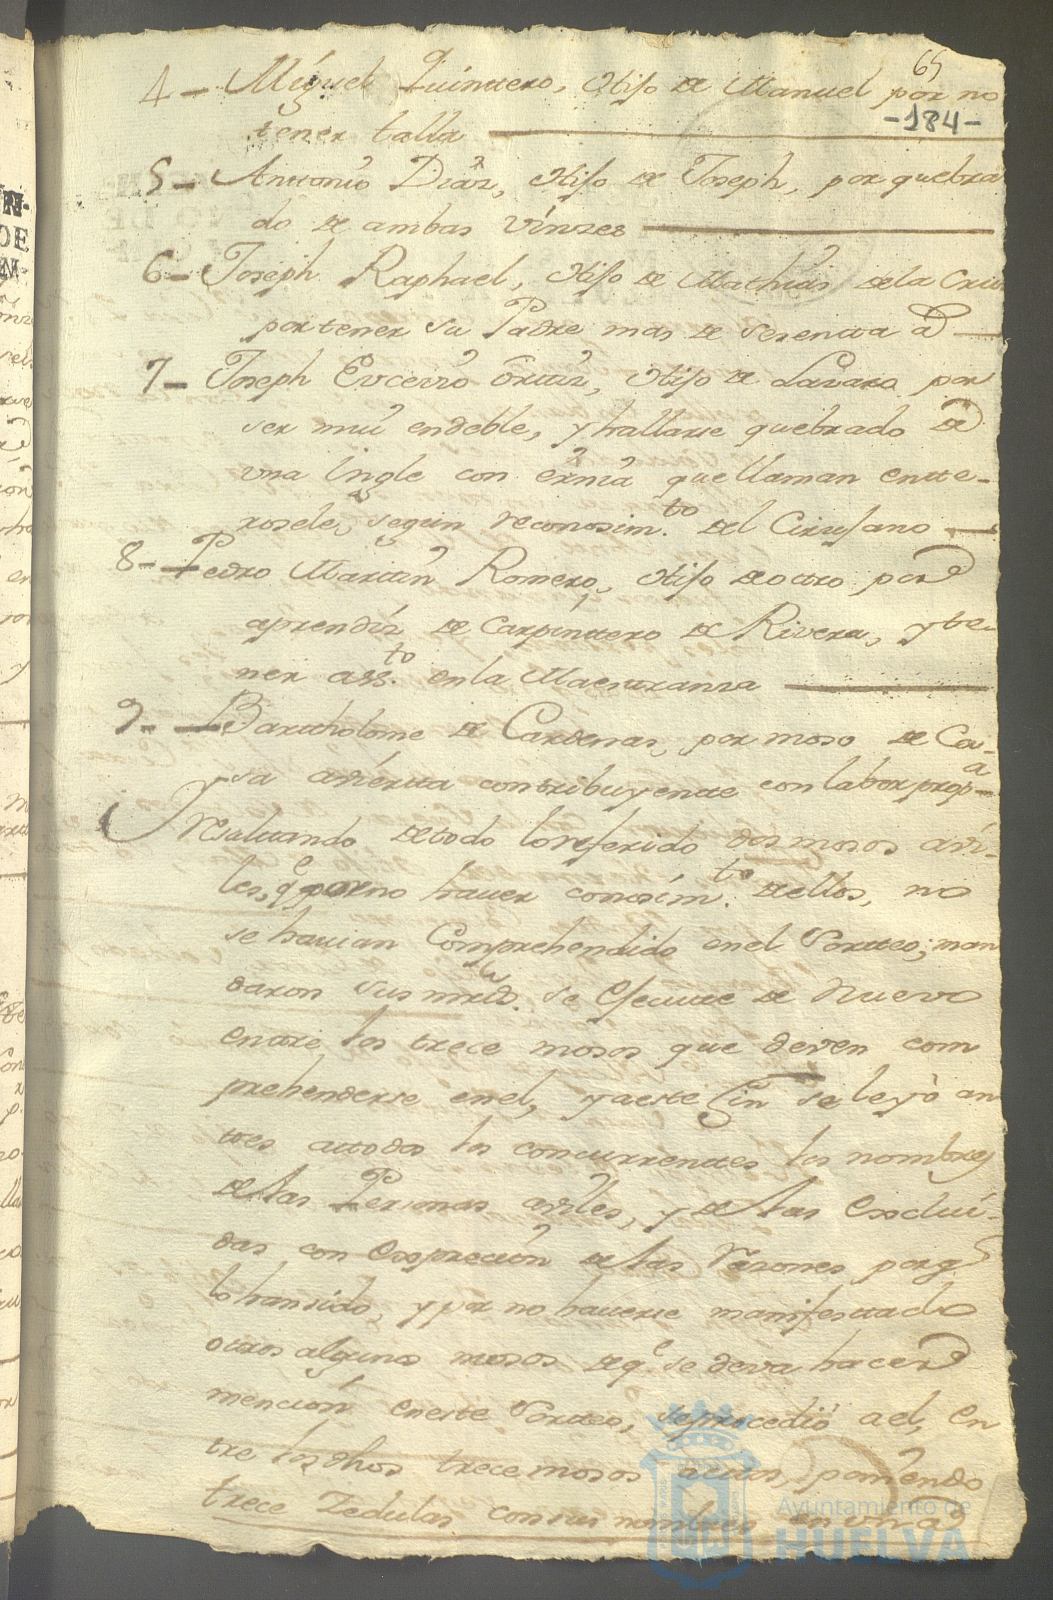 65
-184-
4- Miguel Quintero, Hijo de Manuel por no
tener talla
5- Anttonio Diaz, Hijo de Joseph, por quebra
do de ambas Vinzes
6- Joseph Raphael, Hijo de Mathias de la Cruz
por tener su Padre mas de sesenta a.s
7- Joseph Eucevio Ortiz, Hijo de Lazaro por
ser mui endeble, y hallarse quebrado de
vna Ingle con ernia que llaman entte-
rosele, segun reconosim.to del Cirujano
8- Pedro Martin Romero, Hijo de otro por
aprendiz de Carpinttero de Rivera, y te-
ner ass.to en la Maestranza
9- Barttholome de Cardenas, por moso de Ca-
sa avierta contribuyente con labor propia
Y resultando de todo lo referido dos mosos avi-
les, q.e por no haver conosim.to de ellos, no
se havian Comprehendido en el Sortteo; man
daron sus mrds. se Efecutte de Nuevo
entre los trece mosos que deven com
prehenderse en el, y a este fin se leyò an
tes a todos los concurrenttes los nombres
de las Personas aviles, y de las Exclui-
das con Expreción de las Razones por q.e
lo han sido, y por no haverse manifestado
otros algunos mosos de q.e se deva hacer
mención en este Sortteo, se procedió a el, en
tre los dhos trece mosos, poniendo
trece Zedulas con sus nombres en vna
Ayuntamiento de
HUELVA